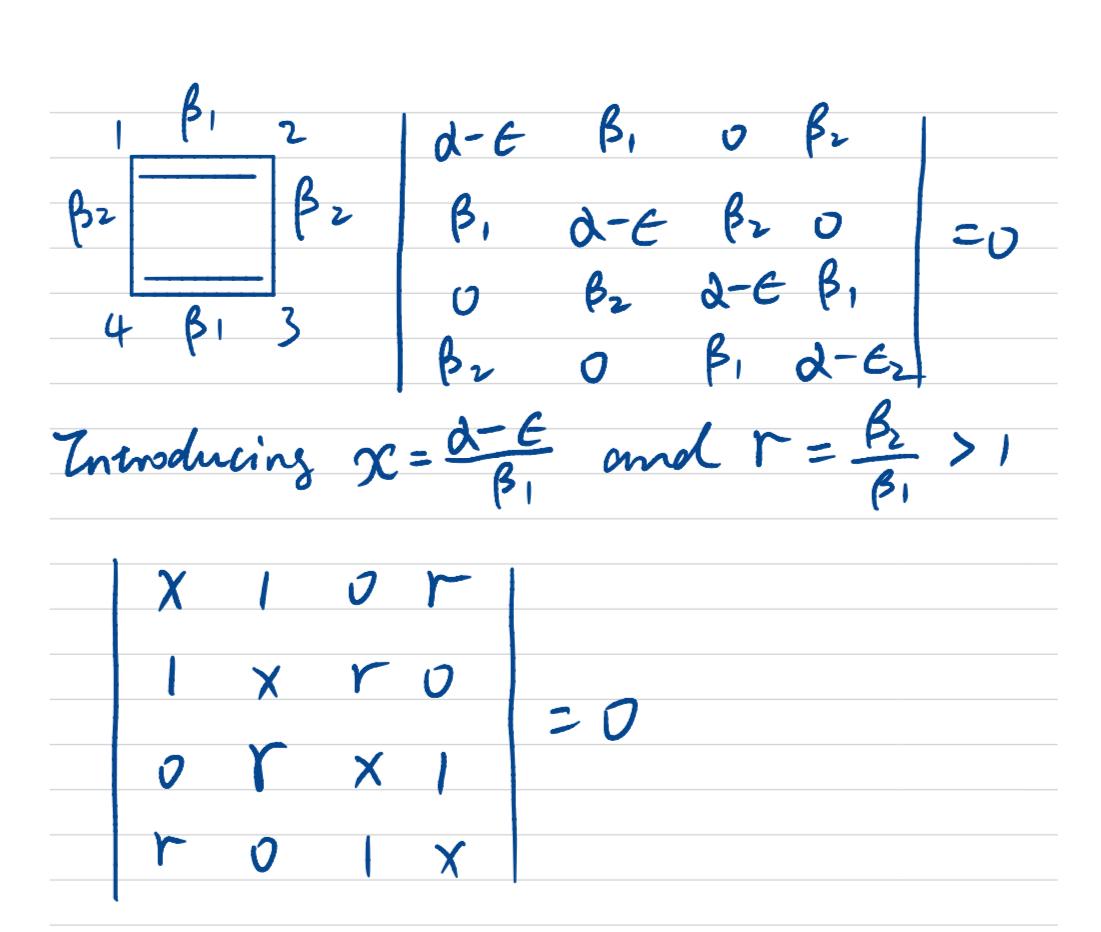 β₁
1 2
β₂ β₂
4 β₁ 3
| α-ϵ β₁ 0 β₂ |
| β₁ α-ϵ β₂ 0 | =0
| 0 β₂ α-ϵ β₁ |
| β₂ 0 β₁ α-ϵ₂ |
Introducing x = (α-ϵ)/β₁ and r = β₂/β₁ > 1
| x 1 0 r |
| 1 x r 0 |
| 0 r x 1 | = 0
| r 0 1 x |